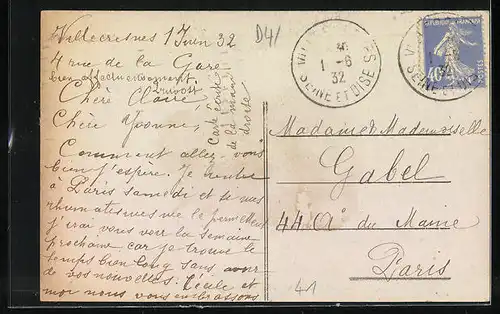 Villecresnes 1 Juin 32
D41
4 rue de la Gare
bien affectueusement
Chère Claire
Chère Yvonne,
Carte écrite
de la main
droite
Comment allez-vous
bien j'espère. Je rentre
à Paris samedi et si mes
rhumatismes me le permettent
j'irai vous voir la semaine
prochaine car je trouve le
temps bien long sans avoir
de vos nouvelles. Cécile et
moi nous vous embrassons
1 -6
32
SEINE ET OISE
40c
Madame Mademoiselle
Gabel
44 Av du Maine
Paris
41